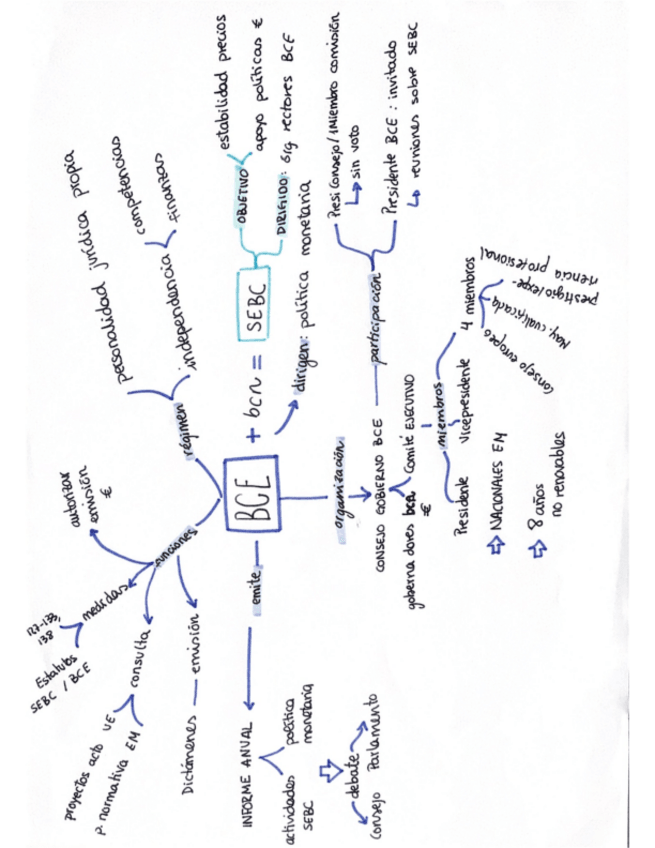 personalidad jurídica propia
independencia
competencias
finanzas
régimen
BCE
+ bcn =
SEBC
OBJETIVO
estabilidad precios
apoyo políticas €
DIRIGIDO: órg rectores BCE
dirigen: política
monetaria
funciones
autorizar
emisión
€
medidas
127-133,
138
Estatutos
SEBC / BCE
consulta
proyectos acto UE
p. normativa EM
emisión
Dictámenes
emite
INFORME ANUAL
actividades
SEBC
política
monetaria
debate
Consejo
Parlamento
organización
CONSEJO GOBIERNO BCE
participación
Presi Consejo/1 Miembro comisión
sin voto
Presidente BCE: invitado
reuniones sobre SEBC
gobernadores
€
Comité EJECUTIVO
miembros
Presidente
Vicepresidente
4 miembros
Consejo europeo
May. cualificada
prestigio/expe-
riencia profesional
NACIONALES EM
8 años
no renovables